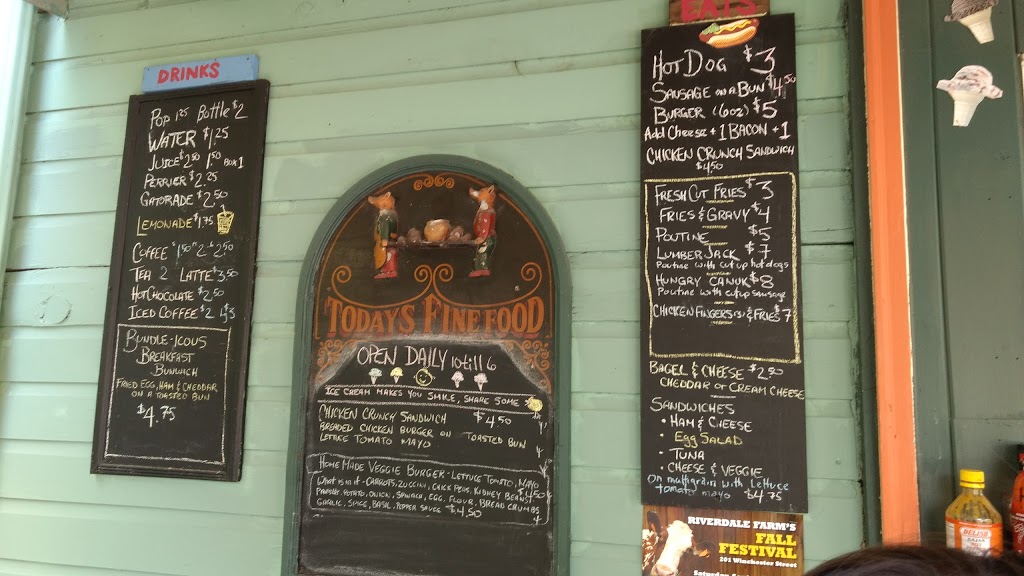 DRINKS
Pop 1.25 Bottle $2
WATER $1.25
JUICE $2.50 1.50 Box 1
PERRIER $2.25
GATORADE $2.50
LEMONADE $1.75
COFFEE $1.50 2 - $2.50
TEA 2 LATTE $3.50
HOT CHOCOLATE $2.50
ICED COFFEE $2 $3
BUNDLE-ICOUS
BREAKFAST
BUNWICH
FRIED EGG, HAM & CHEDDAR
ON A TOASTED BUN
$4.75
TODAYS FINE FOOD
OPEN DAILY 10 till 6
ICE CREAM MAKES YOU SMILE, SHARE SOME
CHICKEN CRUNCH SANDWICH $4.50
BREADED CHICKEN BURGER ON TOASTED BUN
LETTUCE TOMATO MAYO
HOME MADE VEGGIE BURGER - LETTUCE TOMATO, MAYO
WHAT IS IN IT - CARROTS, ZUCCINI, CHICK PEAS, KIDNEY BEANS
PARSLEY, POTATO, ONION, SPINACH, EGG, FLOUR, BREAD CRUMBS
GARLIC, SPICE, BASIL, PEPPER SAUCE $4.50
EATS
HOT DOG $3
SAUSAGE ON A BUN $4.50
BURGER (6oz) $5
Add Cheese +1 BACON +1
CHICKEN CRUNCH SANDWICH
$4.50
FRESH CUT FRIES $3
FRIES & GRAVY $4
POUTINE $5
LUMBER JACK $7
Poutine with cut up hot dogs
HUNGRY CANUK $8
Poutine with cutup sausage
CHICKEN FINGERS (3) & FRIES $7
BAGEL & CHEESE $2.50
CHEDDAR or CREAM CHEESE
SANDWICHES
• HAM & CHEESE
• EGG SALAD
• TUNA
• CHEESE & VEGGIE
On multigrain with Lettuce
tomato mayo $4.75
RIVERDALE FARM'S
FALL
FESTIVAL
201 Winchester Street